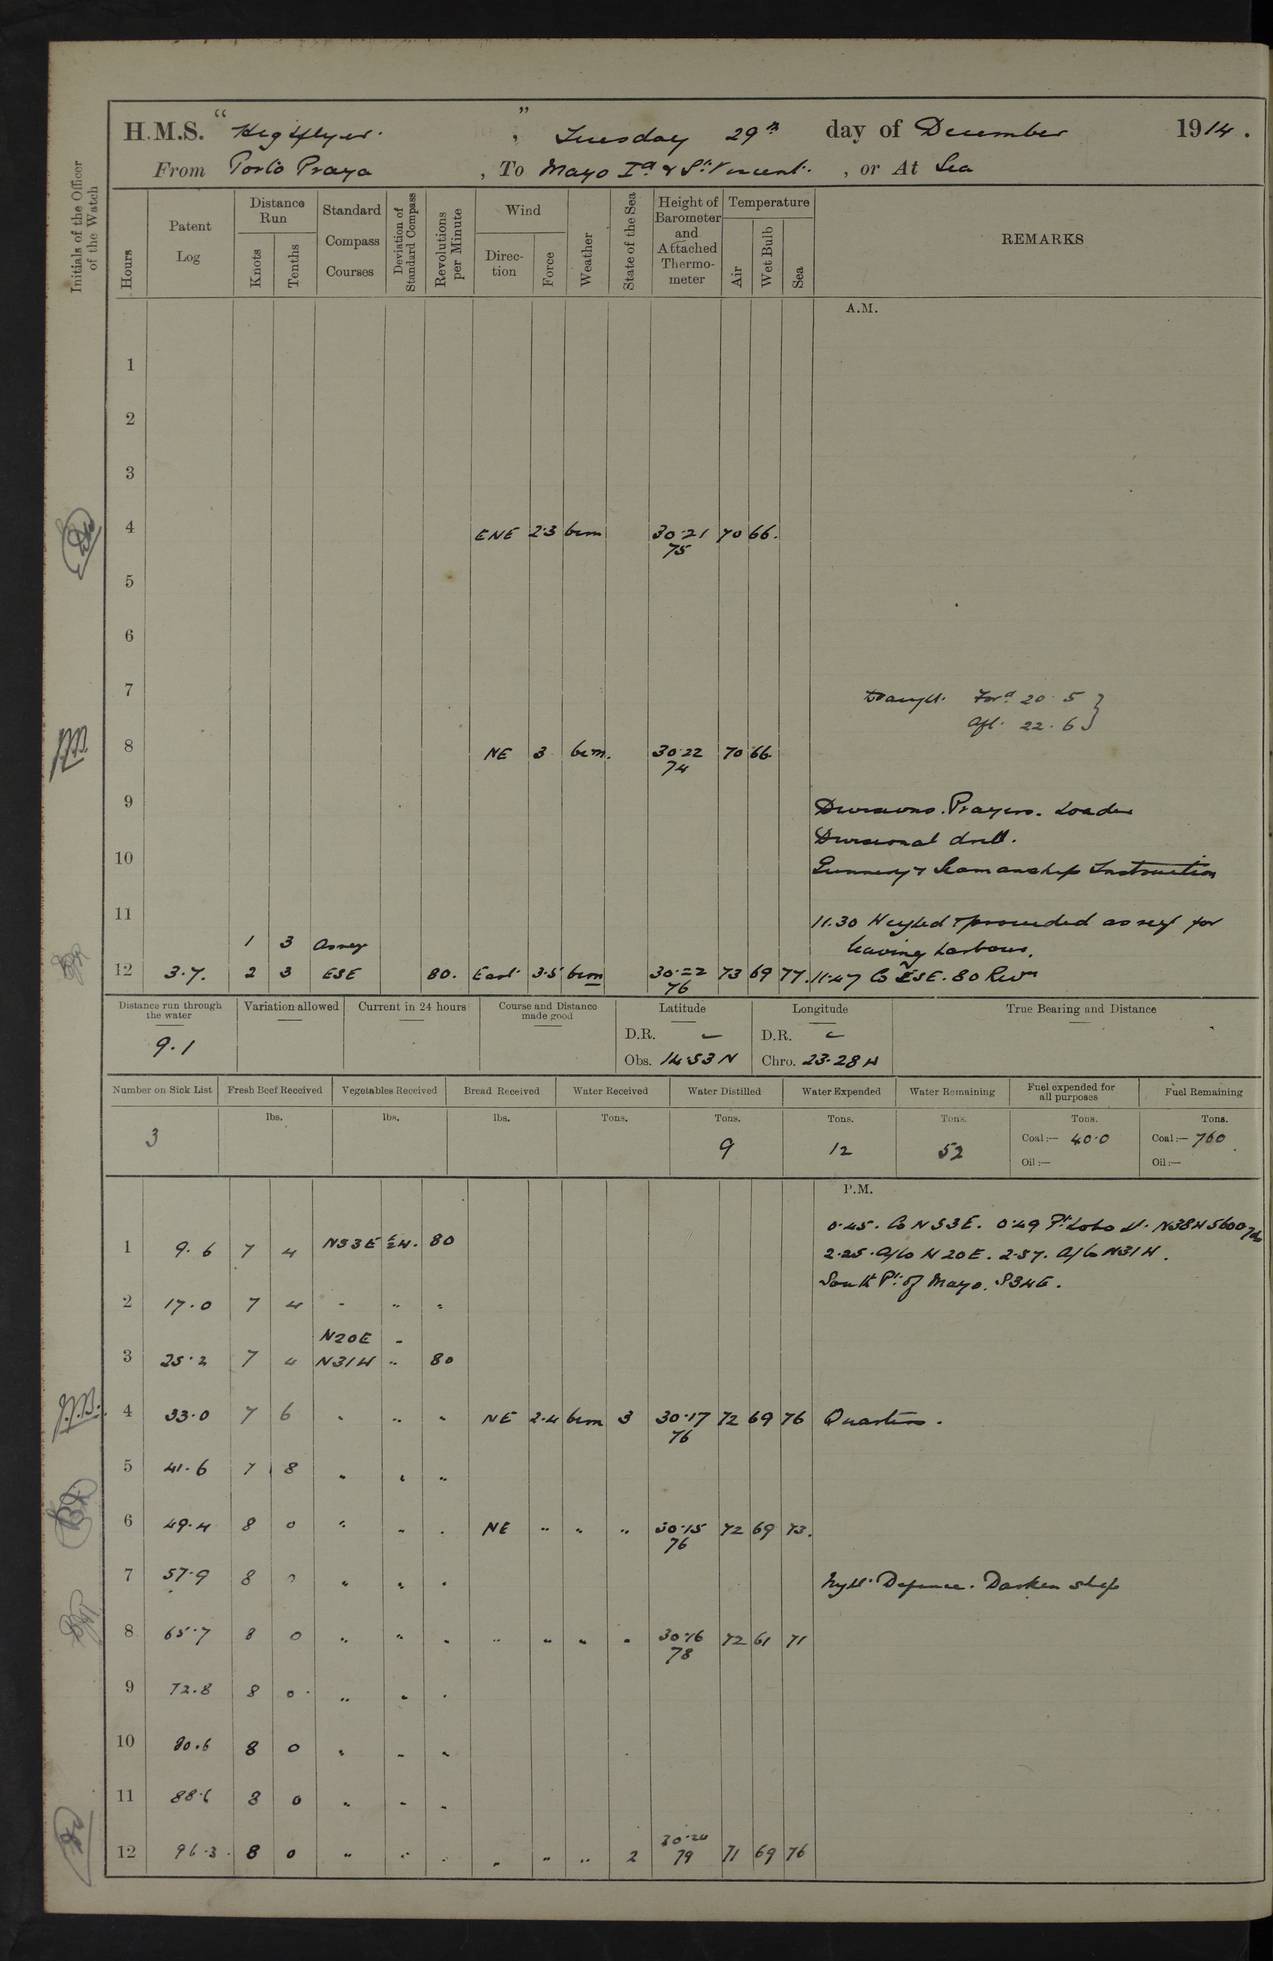 H.M.S. "Highflyer" , Tuesday 29th day of December 1914.
From Porto Praya , To Mayo Id & St Vincent , or At Sea
Initials of the Officer of the Watch
Hours
Patent Log
Distance Run
Knots
Tenths
Standard Compass Courses
Deviation of Standard Compass
Revolutions per Minute
Wind
Direction
Force
Weather
State of the Sea
Height of Barometer and Attached Thermometer
Temperature
Air
Wet Bulb
Sea
REMARKS
A.M.
1
2
3
4 ENE 2·3 bcm 30·21 70 66.
75
5
6
7 Draught. Ford 20·5
Aft. 22·6
8 NE 3 bcm. 30·22 70 66
74
9 Divisions. Prayers. Loader
Divisional drill.
10 Gunnery & Seamanship Instruction
11 11.30 Weighed & proceeded as req for
1 3 As req leaving harbour.
12 3·7. 2 3 ESE 80. East 3·5 bcm 30·22 73 69 77. 11.47 Co ESE. 80 Revs
76
Distance run through the water
9.1
Variation allowed
Current in 24 hours
Course and Distance made good
Latitude
D.R.
Obs. 14·53 N
Longitude
D.R.
Chro. 23·28 W
True Bearing and Distance
Number on Sick List
3
Fresh Beef Received
lbs.
Vegetables Received
lbs.
Bread Received
lbs.
Water Received
Tons.
Water Distilled
Tons.
9
Water Expended
Tons.
12
Water Remaining
Tons.
52
Fuel expended for all purposes
Tons.
Coal:— 40·0
Oil:—
Fuel Remaining
Tons.
Coal:— 760
Oil:—
P.M.
0·45. Co N53E. 0·49 Pt Lobo Lt. N38W 5600 yds
1 9.6 7 4 N53E ½W. 80 2·25. A/Co N20E. 2·57. A/Co N31W.
South Pt. of Mayo. S34E.
2 17·0 7 4 - " "
N20E -
3 25·2 7 4 N31W " 80
4 33·0 7 6 " " " NE 2·4 bcm 3 30·17 72 69 76 Quarters.
76
5 41·6 7 8 " " "
6 49·4 8 0 " " " NE " " " 30·15 72 69 73.
76
7 57·9 8 0 " " " Night Defence. Darken ship
8 65·7 8 0 " " " " " " " 30·16 72 61 71
78
9 72.8 8 0 " " "
10 80.6 8 0 " " "
11 88·6 8 0 " " "
12 96·3. 8 0 " " " " " " 2 30·20 71 69 76
79